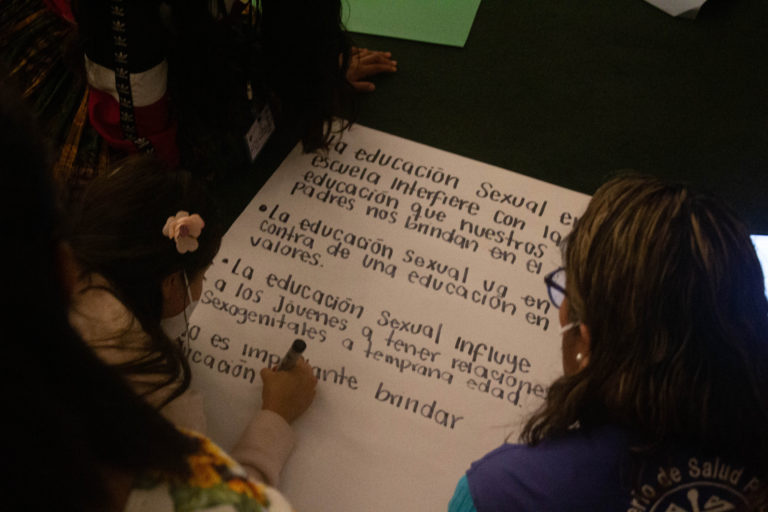 La educación Sexual en
escuela Interfiere con la
educación que nuestras
padres nos brindan en el
•La educación sexual va en
contra de una educación en
valores.
•La educación Sexual Influye
a los Jóvenes a tener relaciones
sexogenitales a temprana edad.
o es importante brindar
ucación
erio de Salud P